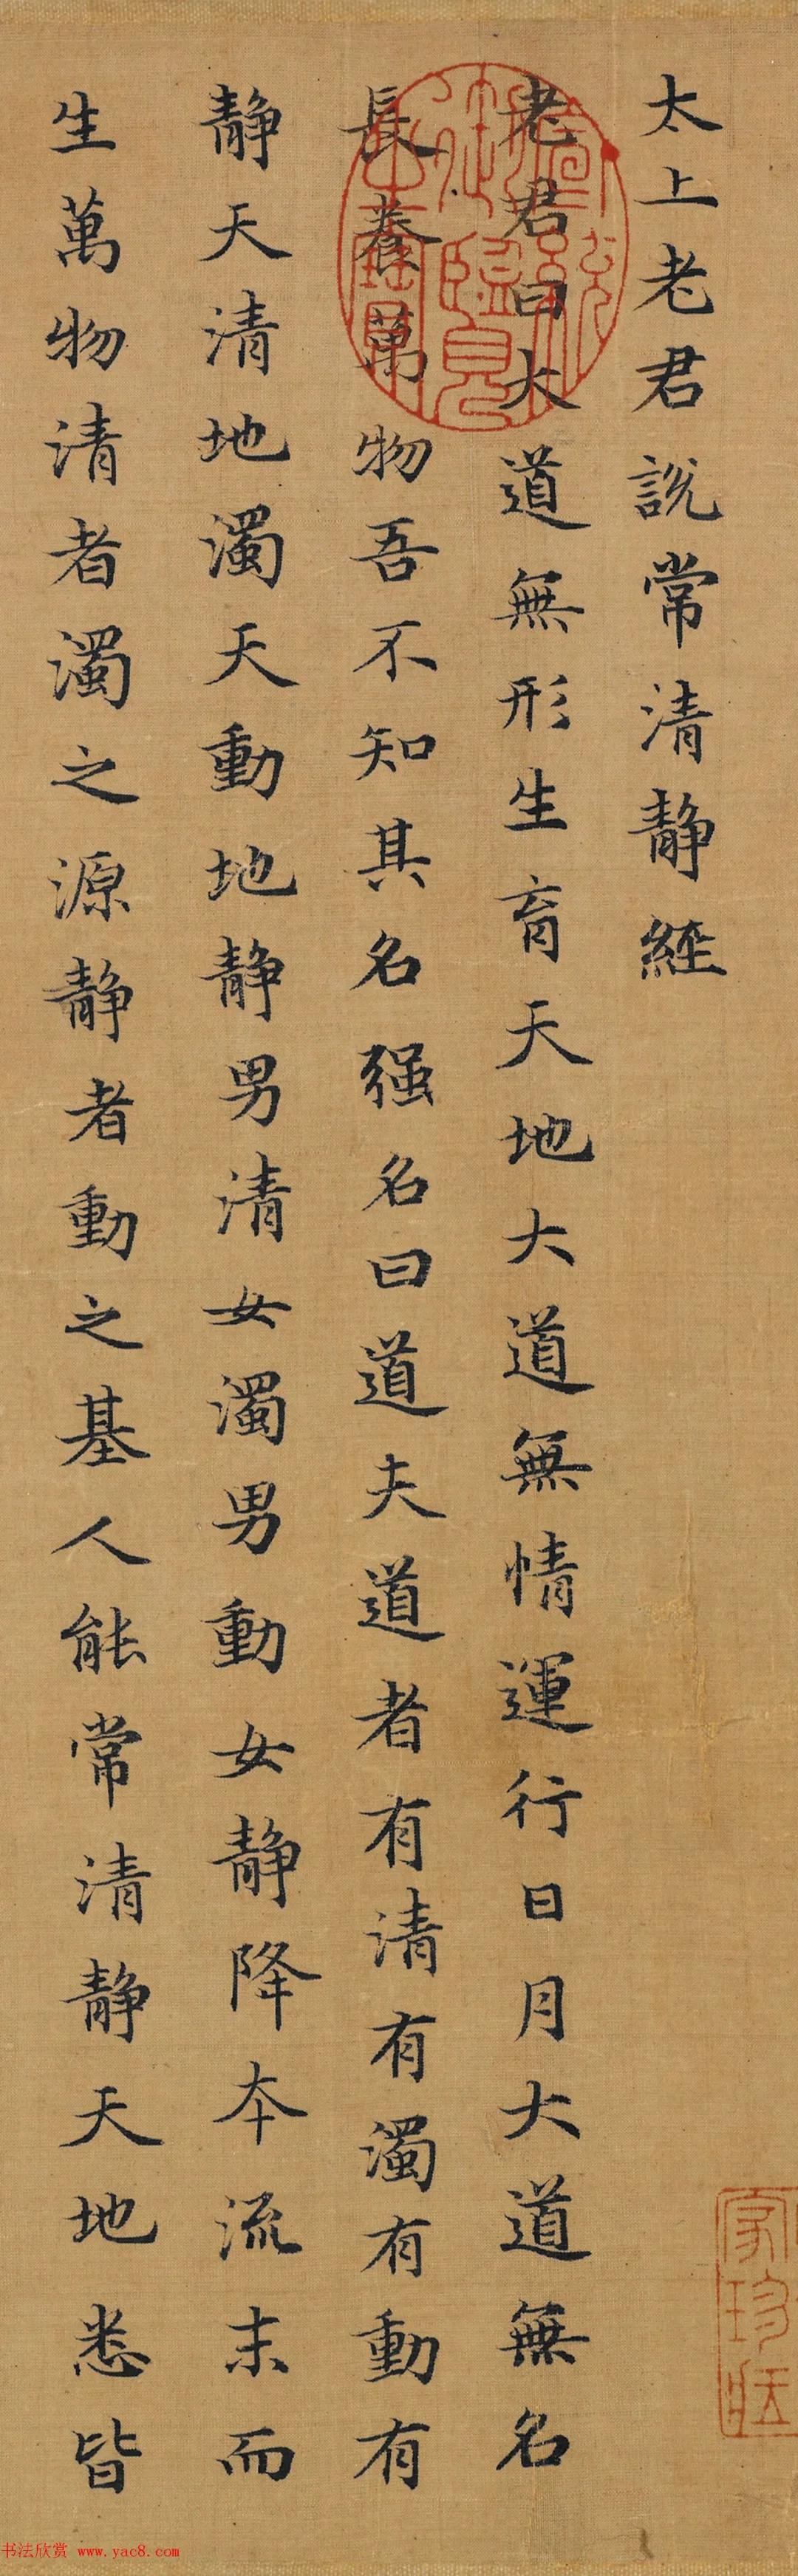 太上老君說常清静經
老君曰大道無形生育天地大道無情運行日月大道無名
長養萬物吾不知其名强名曰道夫道者有清有濁有動有
静天清地濁天動地静男清女濁男動女静降本流末而
生萬物清者濁之源静者動之基人能常清静天地悉皆
宣統御覽之寶
書法欣赏 www.yac8.com